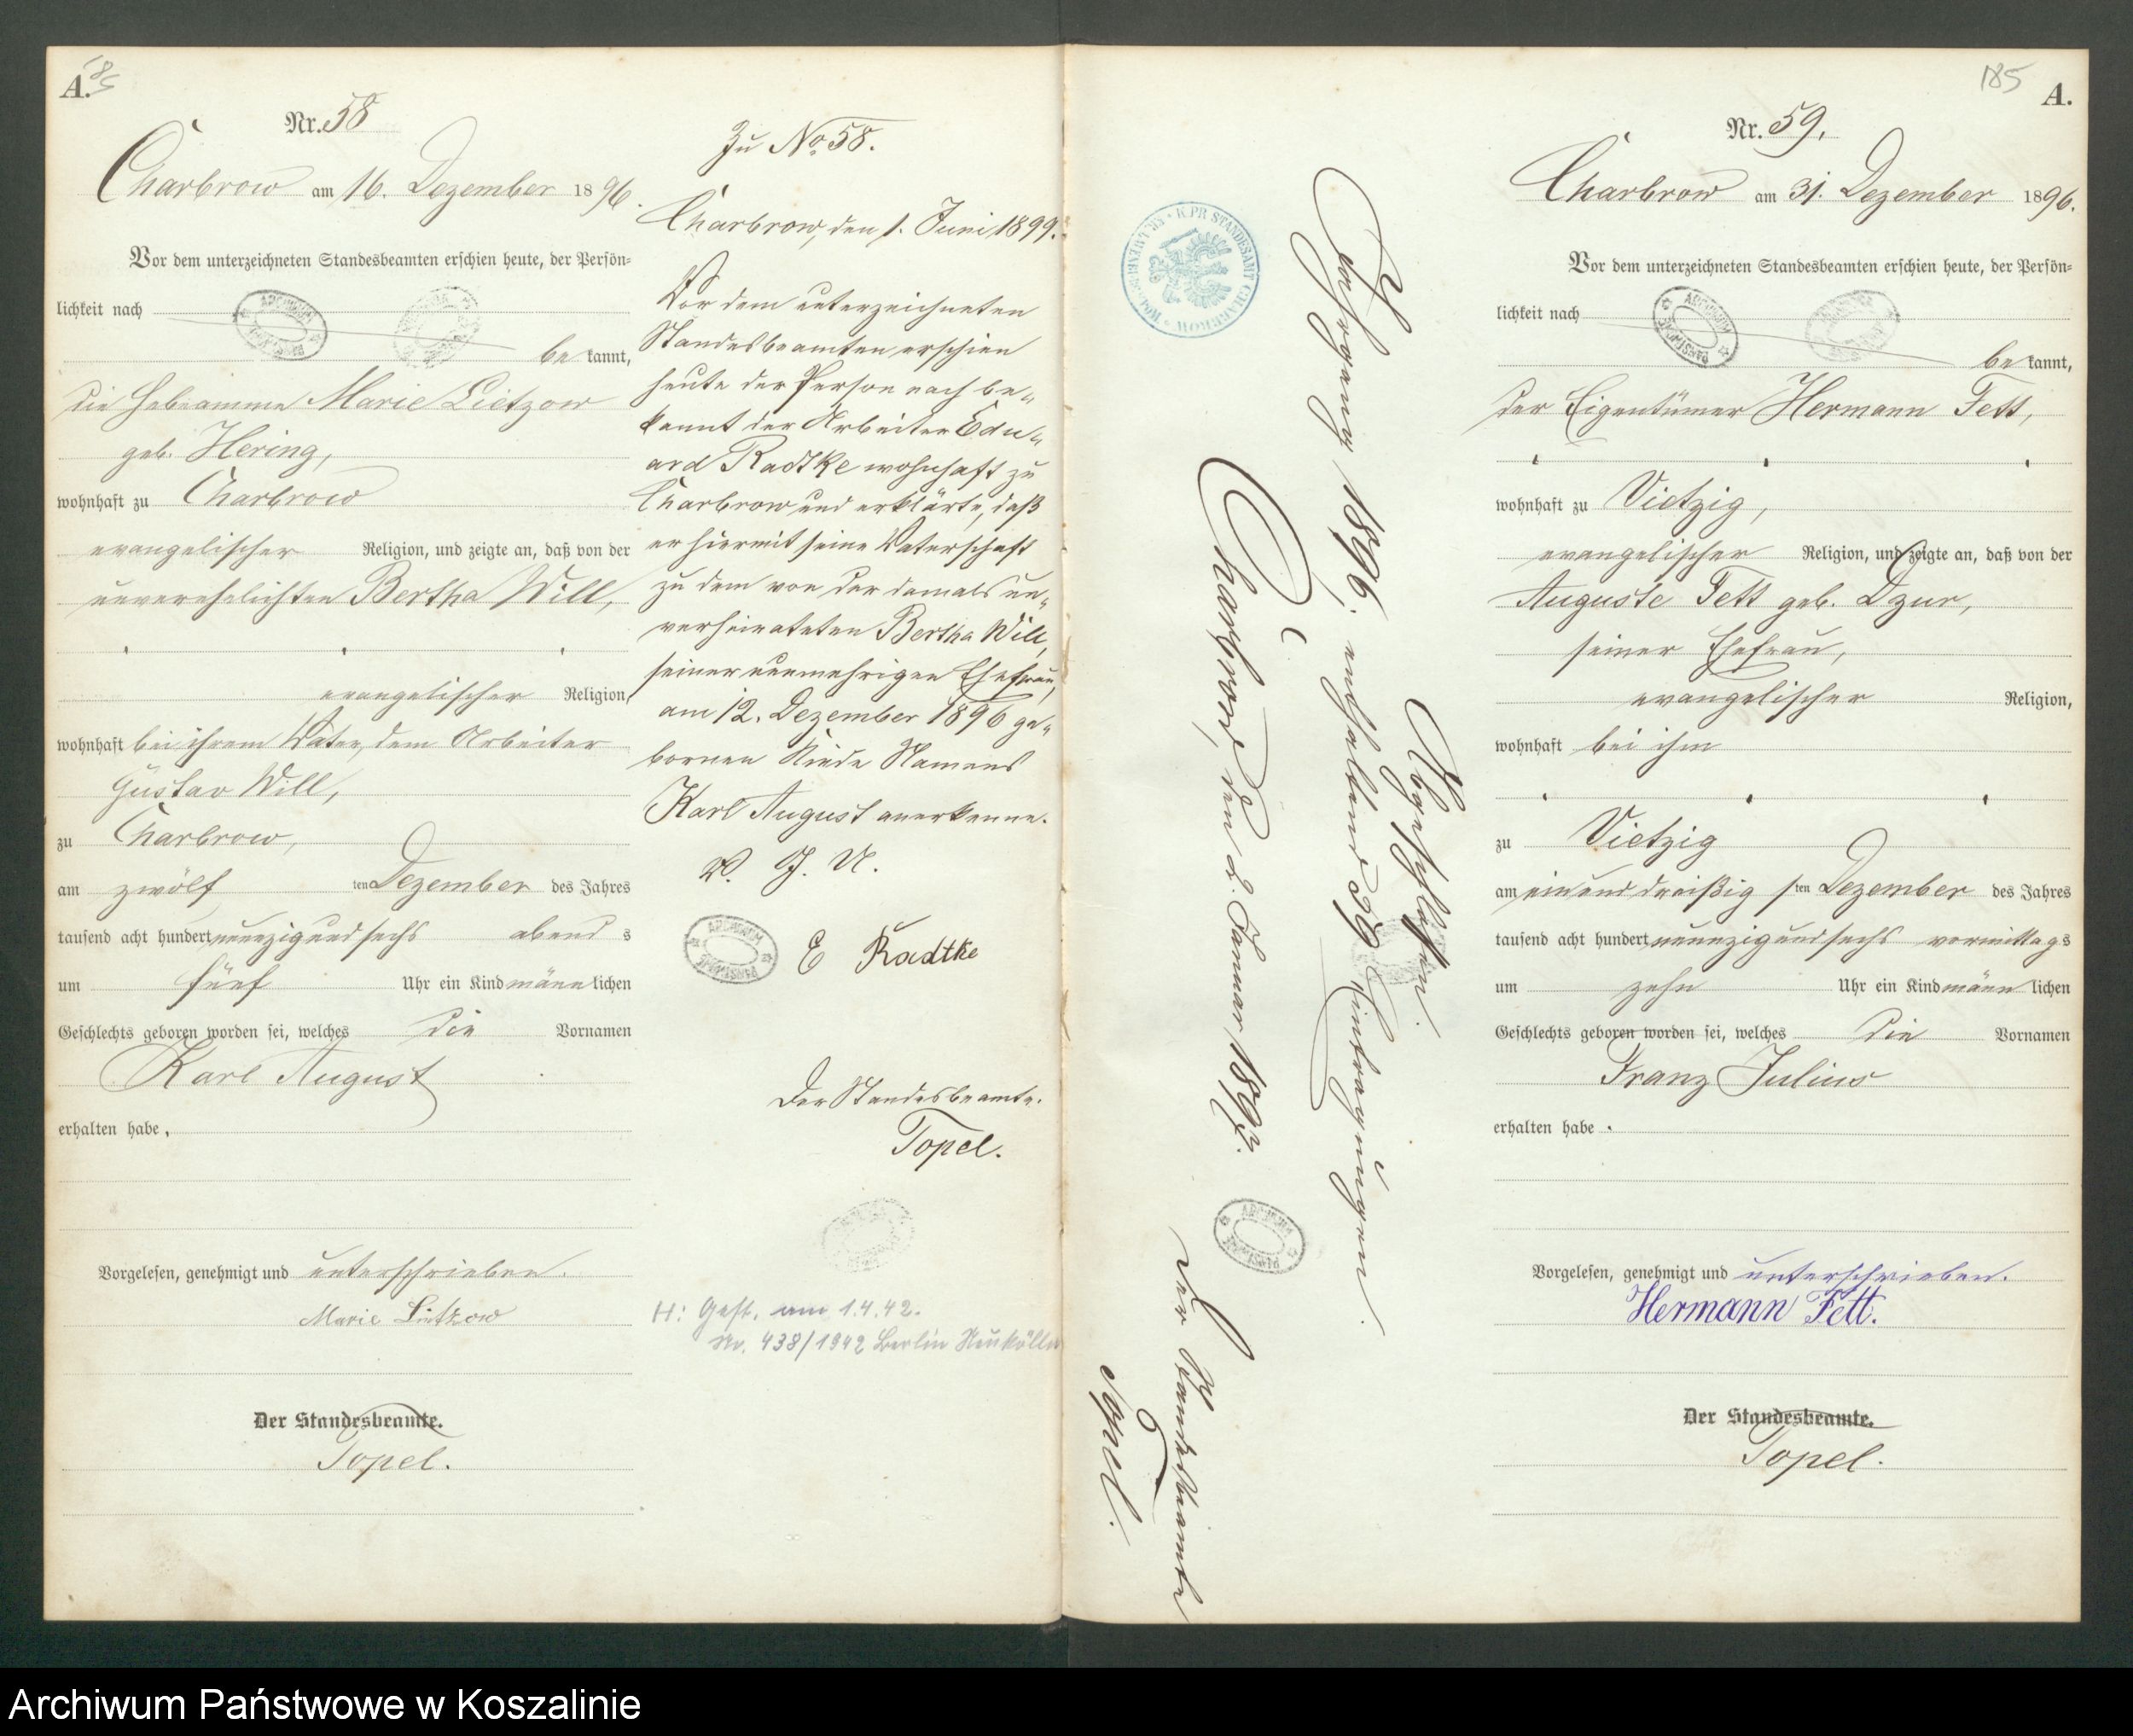 A.
Nr. 58
Charbrow am 16. Dezember 1896.
Vor dem unterzeichneten Standesbeamten erschien heute, der Persön-
lichkeit nach
be kannt,
die Hebeamme Marie Lietzow
geb. Hering,
wohnhaft zu Charbrow
evangelischer Religion, und zeigte an, daß von der
unverehelichten Bertha Will,
evangelischer Religion,
wohnhaft bei ihrem Vater, dem Arbeiter
Gustav Will,
zu Charbrow,
am zwölf ten Dezember des Jahres
tausend acht hundert neunzig und sechs abend s
um fünf Uhr ein Kind männ lichen
Geschlechts geboren worden sei, welches die Vornamen
Karl August
erhalten habe.
Vorgelesen, genehmigt und unterschrieben.
Marie Lietzow
Der Standesbeamte.
Topel.
Zu No 58.
Charbrow, den 1. Juni 1899.
Vor dem unterzeichneten
Standesbeamten erschien
heute der Person nach be-
kannt der Arbeiter Edu-
ard Radtke wohnhaft zu
Charbrow und erklärte, daß
er hiermit seine Vaterschaft
zu dem von der damals un-
verheirateten Bertha Will,
seiner nunmehrigen Ehefrau,
am 12. Dezember 1896 ge-
bornen Kinde Namens
Karl August anerkenne.
V. G. U.
E Radtke
Der Standesbeamte.
Topel.
H: Gest. am 1.4.42.
Nr. 438/1942 Berlin Neukölln
Abgeschlossen.
Jahrgang 1896. enthaltend 59 Eintragungen.
Charbrow, den 2. Januar 1897.
Der Standesbeamte
Topel.
185
A.
Nr. 59.
Charbrow am 31. Dezember 1896.
Vor dem unterzeichneten Standesbeamten erschien heute, der Persön-
lichkeit nach
be kannt,
der Eigentümer Hermann Fett,
wohnhaft zu Vietzig,
evangelischer Religion, und zeigte an, daß von der
Auguste Fett geb. Dzur,
seiner Ehefrau,
evangelischer Religion,
wohnhaft bei ihm
zu Vietzig
am einund dreißig sten Dezember des Jahres
tausend acht hundert neunzig und sechs vormittags
um zehn Uhr ein Kind männ lichen
Geschlechts geboren worden sei, welches die Vornamen
Franz Julius
erhalten habe.
Vorgelesen, genehmigt und unterschrieben.
Hermann Fett.
Der Standesbeamte.
Topel.
Archiwum Państwowe w Koszalinie